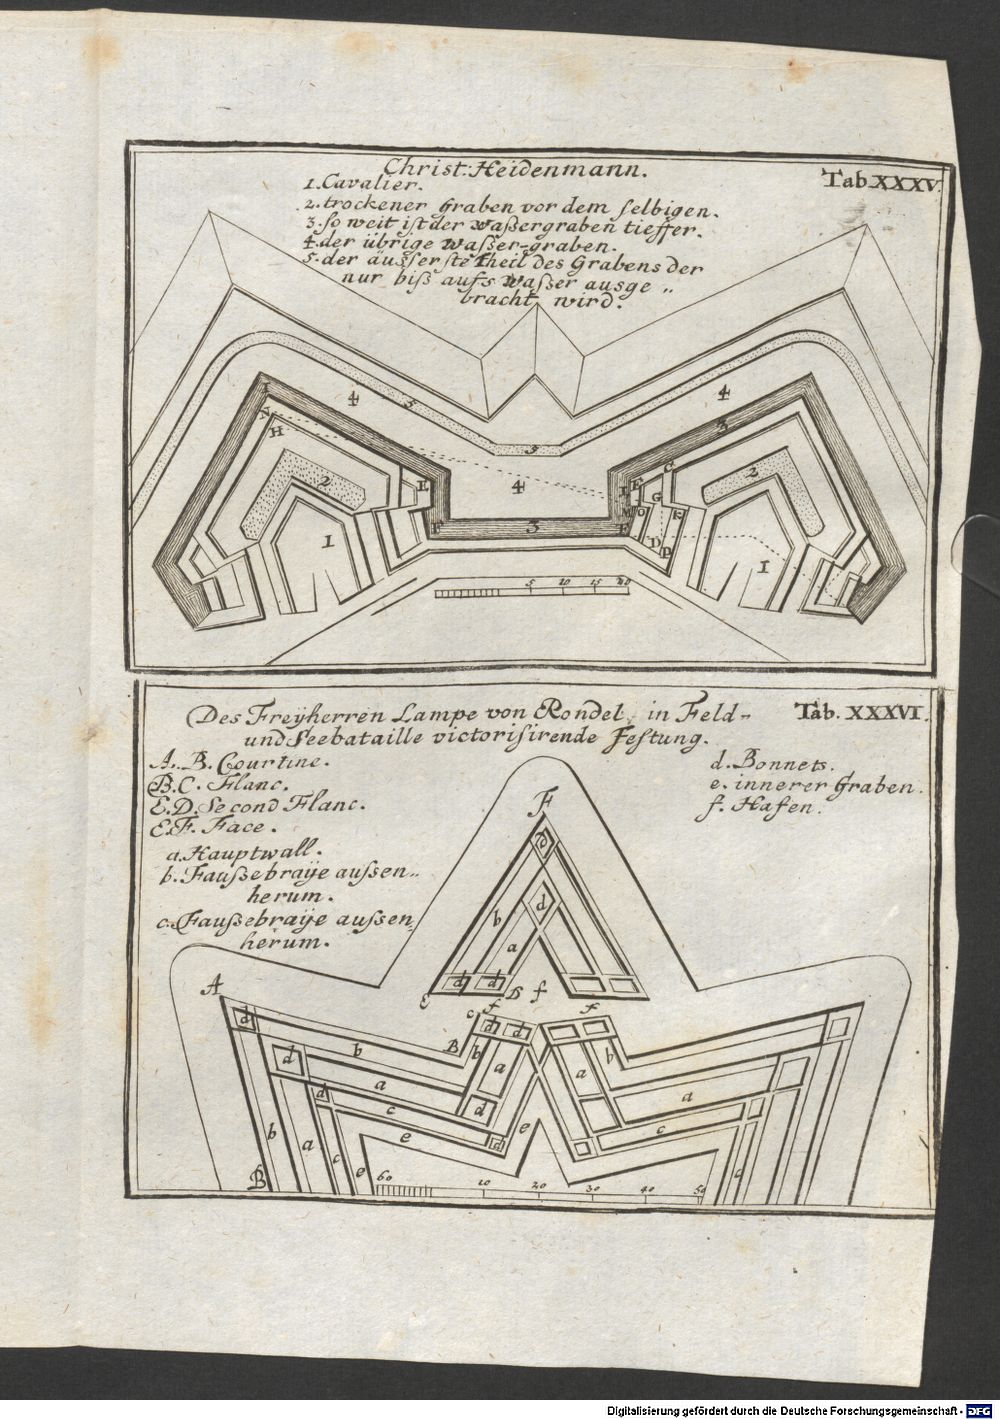 Christ: Heidenmann.
Tab. XXXV.
1. Cavalier.
2. trockener Graben vor dem selbigen.
3. so weit ist der Waßergraben tieffer.
4. der übrige Waßer-graben.
5. der äusserste Theil des Grabens der
nur biß aufs Waßer ausge „
bracht wird.
4
5
4
3
N
H
2
5
2
4
1
E
F
3
C
E
I
G
M
O
K
F
D
P
1
5 10 15 20
Des Freÿherren Lampe von Rondel, in Feld-
und Seebataille victorisirende Festung.
Tab. XXXVI.
A. B. Courtine.
B. C. Flanc.
E. D. Second Flanc.
E. F. Face.
a. Hauptwall.
b. Faußebraÿe aussen„
herum.
c. Faußebraÿe aussen„
herum.
d. Bonnets.
e. innerer Graben.
f. Hafen.
F
d
d
b
a
d d
D f
A
c f f
d d d
B b
b a a b
d
a a
d c d
c
b a c e e d e
B c
60 10 20 30 40 50
Digitalisierung gefördert durch die Deutsche Forschungsgemeinschaft - DFG